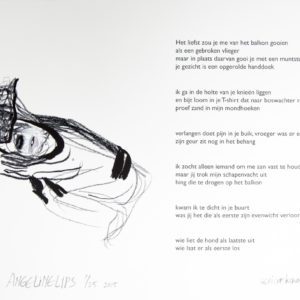 Het liefst zou je me van het balkon gooien
als een gebroken vlieger
maar in plaats daarvan gooi je met een muntstuk
je gezicht is een opgerolde handdoek
ik ga in de holte van je knieën liggen
en bijt loom in je T-shirt dat naar boswachter
proef zand in mijn mondhoeken
verlangen doet pijn in je buik, vroeger was er
zijn geur zit nog in het behang
ik zocht alleen iemand om me aan vast te
maar jij trok mijn schapenvacht uit
hing die te drogen op het balkon
kwam ik te dicht in je buurt
was jij het die als eerste zijn evenwicht verloor
wie liet de hond als laatste uit
wie laat er als eerste los
ANGELINE LIPS 1/25 2015